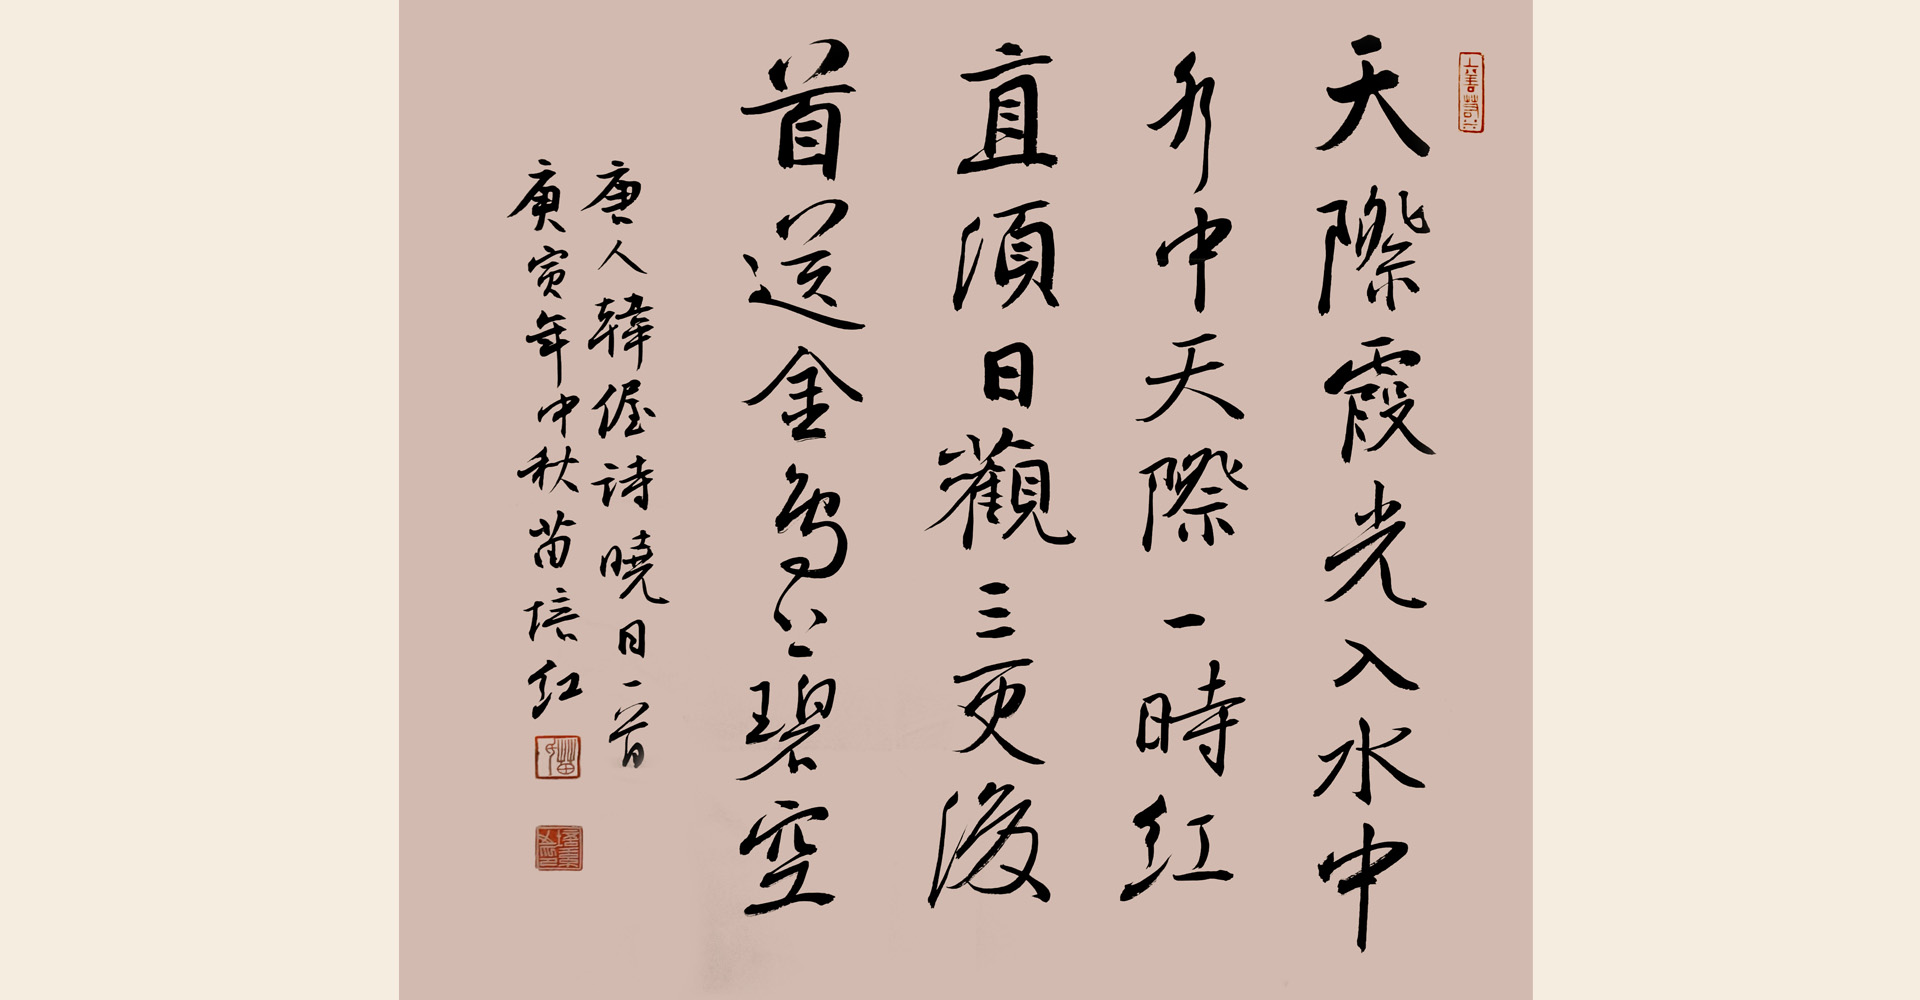 天際霞光入水中
水中天際一時紅
直須日觀三更後
首送金烏上碧空
唐人韓偓詩曉日一首
庚寅年中秋苗培红